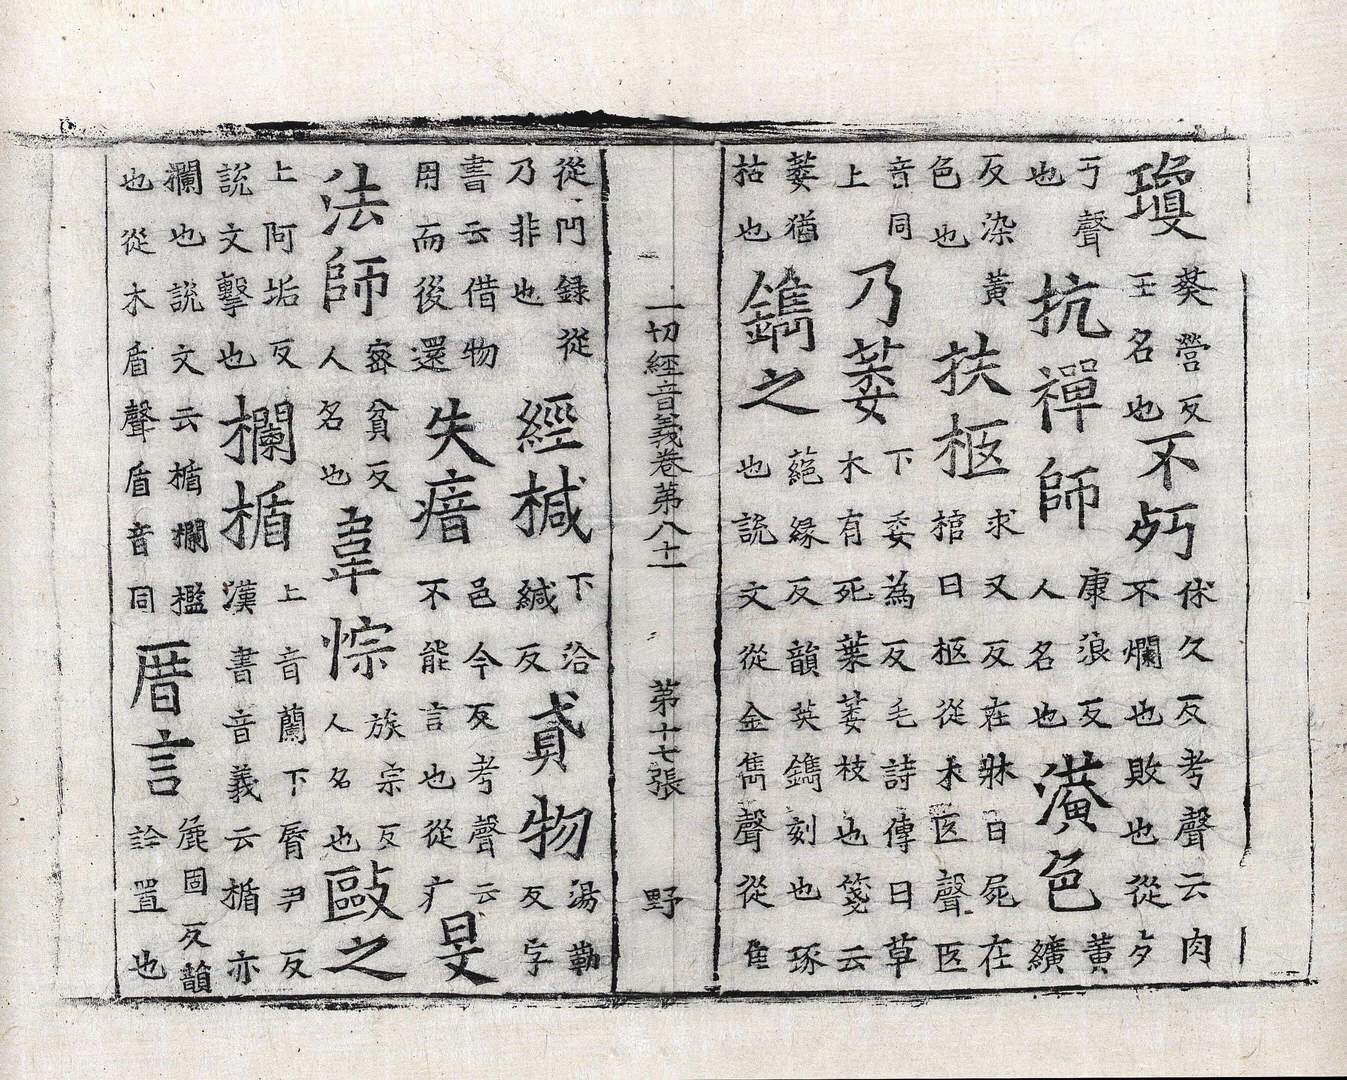 瓊葵營反玉名也不朽休久反考聲云肉不爛也敗也從歹
丂聲也抗禪師康浪反人名也潢色黃纊
反染黃色也扶柩求又反在牀曰屍在棺曰柩從木匛聲匛
音同上乃萎下委為反毛詩傳曰草木有死葉萎枝也箋云
萎猶枯也鐫之蕝緣反韻英鐫刻也琢也說文從金雋聲從隹
一切經音義卷第八十一 第十七張 野
從門錄從乃非也經椷下洽緘反貣物湯勒反字
書云借物用而後還失瘖邑今反考聲云不能言也從疒旻
法師密貧反人名也韋悰族宗反人名也毆之
上阿垢反說文擊也欄楯上音蘭下脣尹反漢書音義云楯亦
欄也說文云楯欄檻也從木盾聲盾音同厝言麁固反韻詮置也